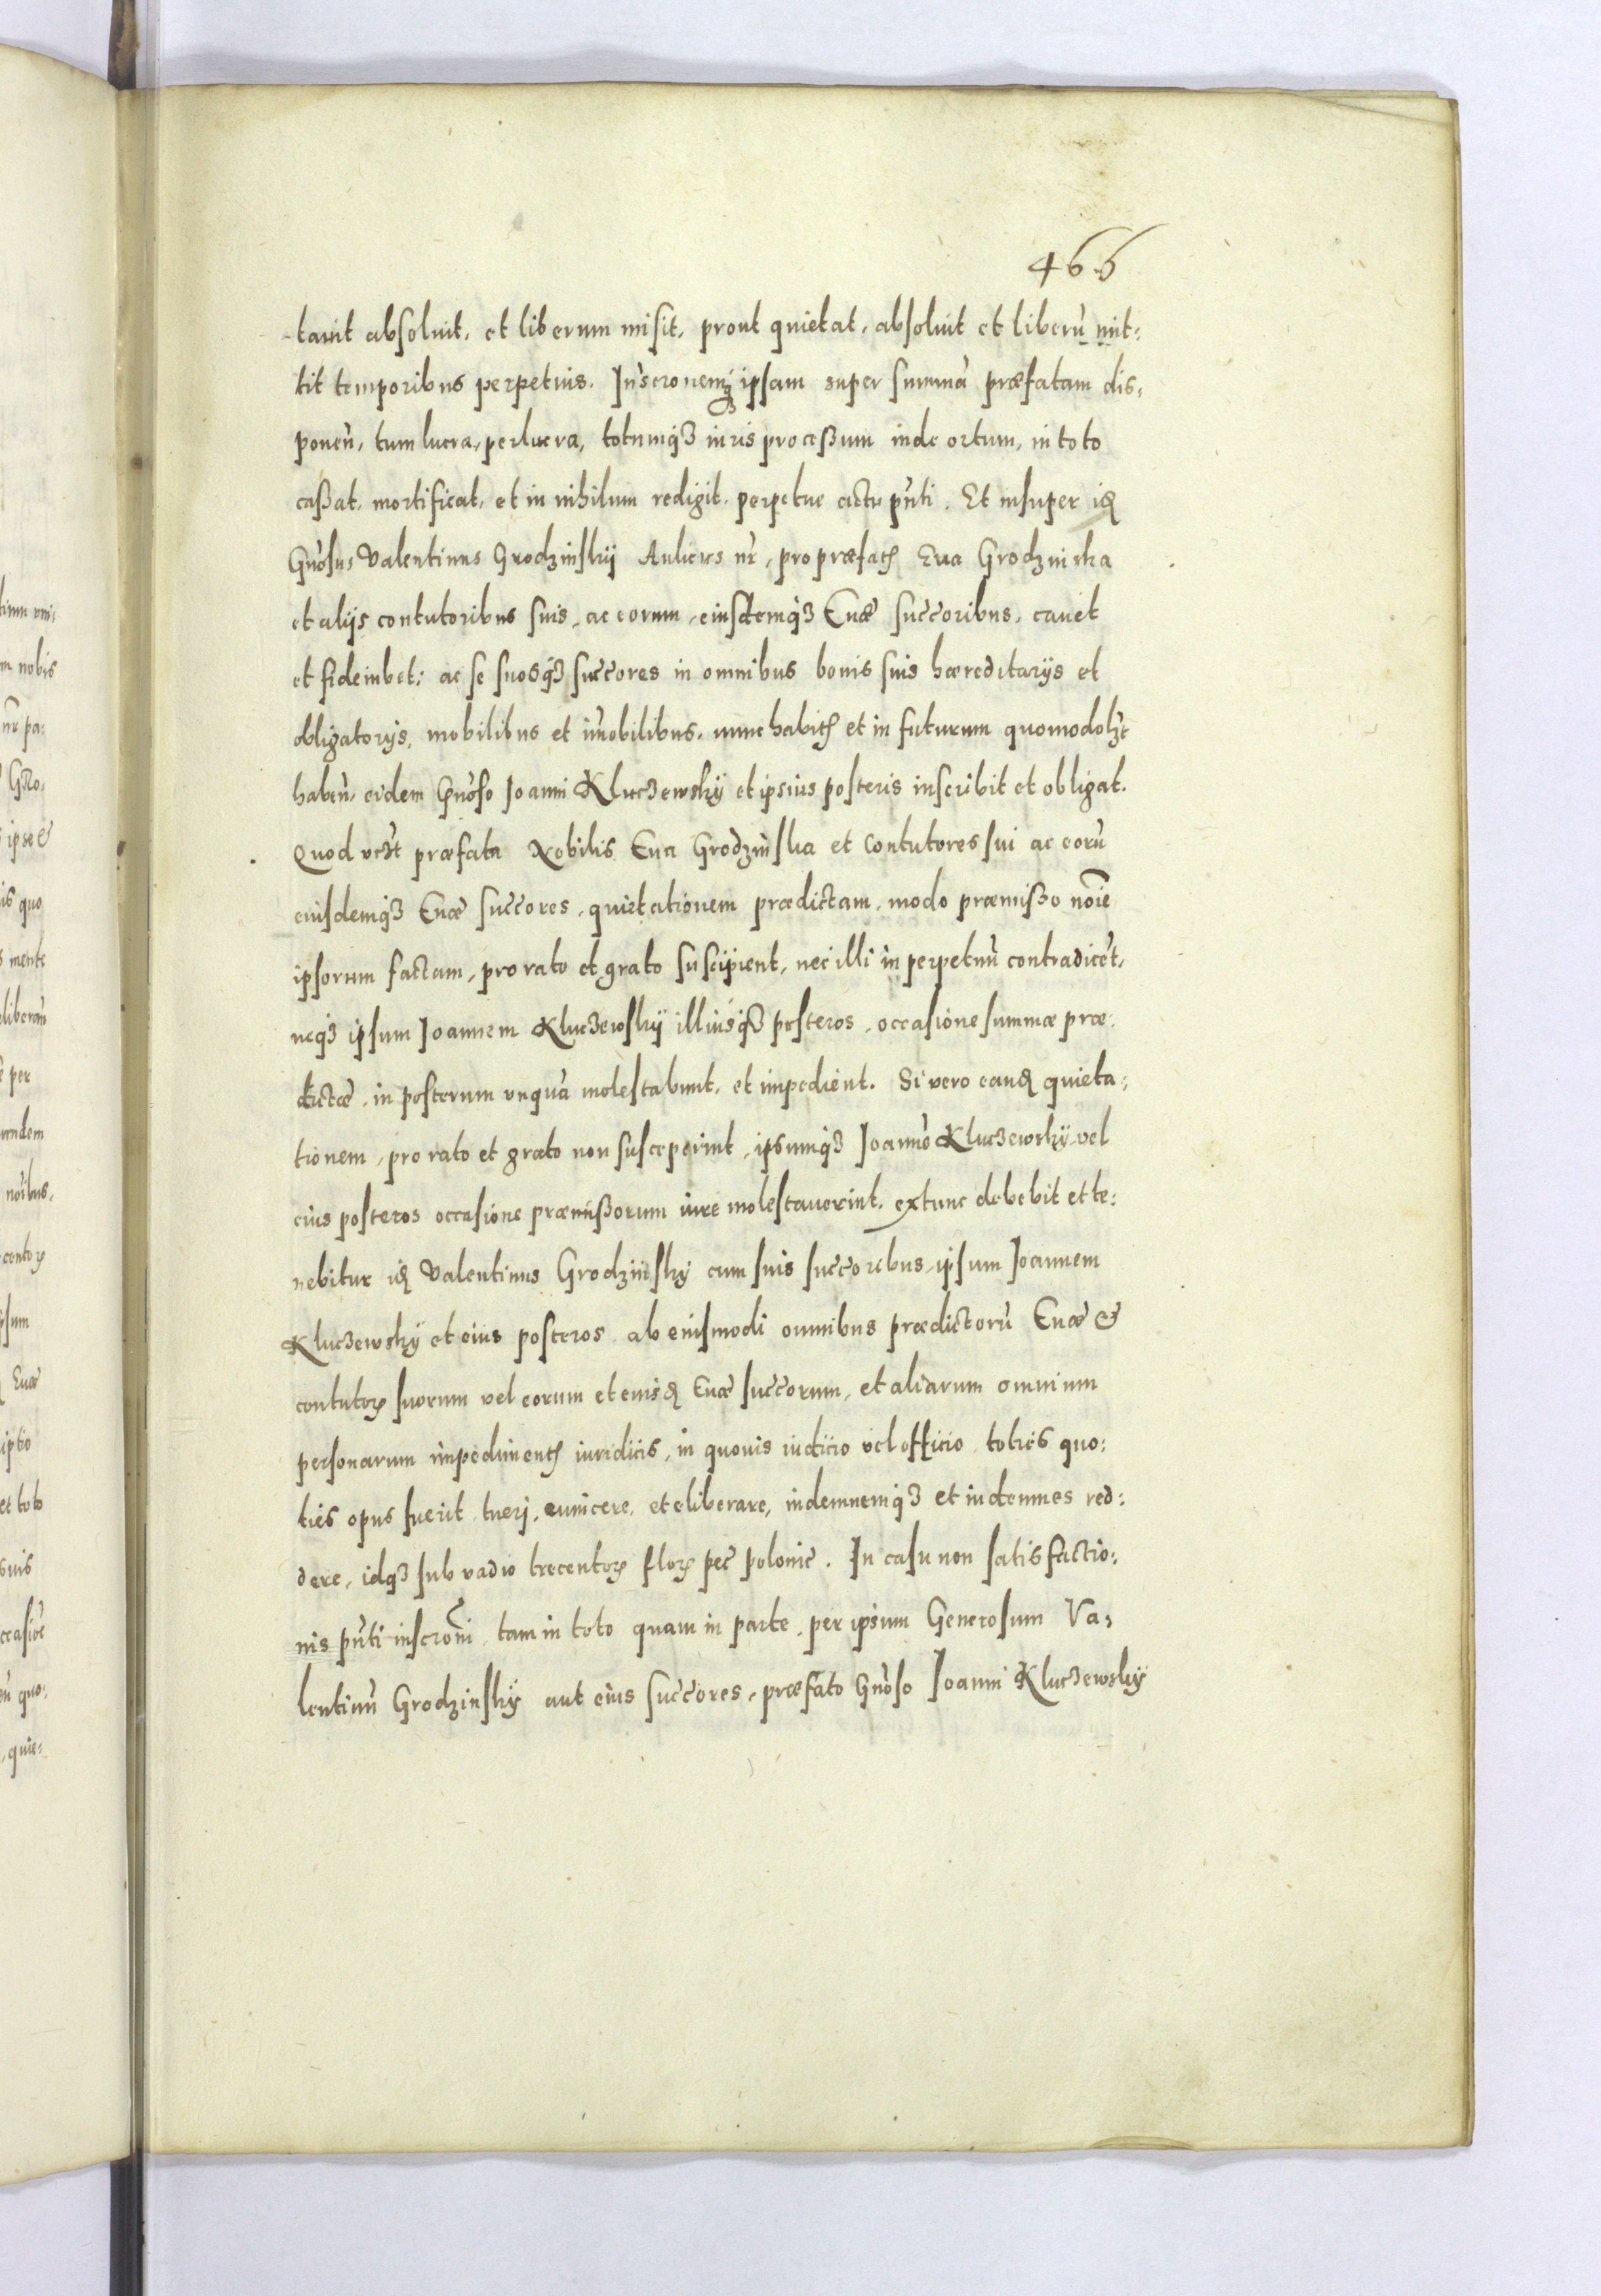 466
tauit absoluit, et liberum misit, prout quietat, absoluit et liberū mit:
tit temporibus perpetuis. Inscronemq3 ipsam super summā præfatam dis,
ponen̄, tum lucra, perlucra, totumq3 iuris processum inde ortum, in toto
cassat, mortificat, et in nihilum redigit perpetue actu pn̄ti. Et insuper idē
Gn̄osus Valentinus Grodzinskij Aulicus nr̄, pro præfatis Eua Grodzinska
et alijs contutoribus suis, ac eorum, eiusdemq3 Euæ succ̄oribus, cauet
et fideiubet: ac se suosq3 succ̄ores in omnibus bonis suis hæreditarijs et
obligatorijs, mobilibus et im̄obilibus, nunc habitis et in futurum quomodolz̄t
haben̄, eidem Gn̄oso Joanni Kluczewsky et ipsius posteris inscribit et obligat.
Quod præfata Nobilis Eua Grodzinska et Contutores sui ac eorū
eiusdemq3 Euæ succ̄ores, quietationem prædictam, modo præmisso noīe
ipsorum factam, pro rato et grato suscipient, nec illi in perpetuū contradicēt,
neq3 ipsum Joannem Kluczewskÿ illiusq3 posteros, occasione summæ præ:
dictæ, in posterum vnquā molestabunt, et impedient. Si vero eandē quieta:
tionem, pro rato et grato non susceperint, ipsumq3 Joannē Kluczewskÿ vel
eius posteros occasione præmissorum iure molestauerint, extunc debebit et te:
nebitur idē Valentinus Grodzinsky cum suis succ̄oribus, ipsum Joannem
Kluczewsky et eius posteros ab eiusmodi omnibus prædictorū Euæ &
contutorꝝ suorum vel eorum et eiusdē Euæ succ̄orum, et aliarum omnium
personarum impedimentis iuridicis, in quouis iudicio vel officio toties quo:
ties opus fuerit tueri, euincere, et eliberare, indemnemq3 et indemnes red:
dere, idq3 sub vadio trecentorꝝ florꝝ pec̄ polonic̄. In casu non satisfactio:
nis pn̄ti inscrōni tam in toto quam in parte, per ipsum Generosum Va,
lentinū Grodzinsky aut eius succ̄ores, præfato Gn̄oso Joanni Kluczewskÿ